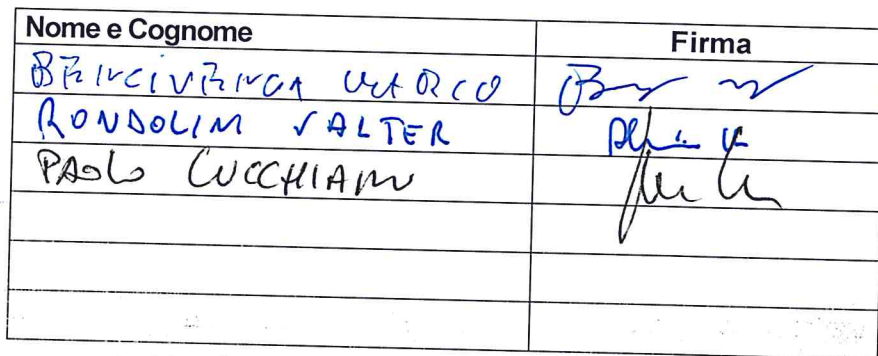 Nome e Cognome Firma
BENCIVENGA MARCO
RONDOLINI VALTER
PAOLO CUCCHIARO